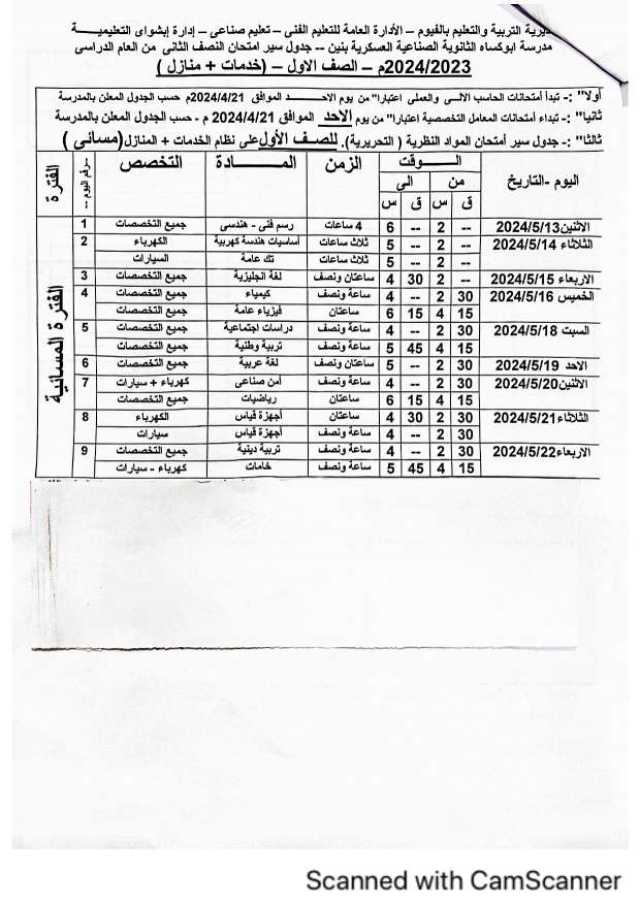 ديرية التربية والتعليم بالفيوم – الأدارة العامة للتعليم الفنى – تعليم صناعى – إدارة إبشواى التعليميـــة
مدرسة ابوكساه الثانوية الصناعية العسكرية بنين -- جدول سير امتحان النصف الثانى من العام الدراسى
2024/2023م – الصف الاول – (خدمات + منازل )
أولا" :- تبدأ أمتحانات الحاسب الالـــى والعملى اعتبارا" من يوم الاحـــد الموافق 2024/4/21م حسب الجدول المعلن بالمدرسة
ثانيا" :- تبداء أمتحانات المعامل التخصصية اعتبارا" من يوم الأحد الموافق 2024/4/21 م - حسب الجدول المعلن بالمدرسة
ثالثا" :- جدول سير أمتحان المواد النظرية ( التحريرية). للصف الأول على نظام الخدمات + المنازل(مسائى )
اليوم -التاريخ الـــوقت الزمن المـــادة التخصص رقم اليوم الفترة
من الى
ق س ق س
الاثنين2024/5/13 -- 2 -- 6 4 ساعات رسم فنى - هندسى جميع التخصصات 1
الثلاثاء 2024/5/14 -- 2 -- 5 ثلاث ساعات أساسيات هندسة كهربية الكهرباء 2
-- 2 -- 5 ثلاث ساعات تك عامة السيارات
الاربعاء 2024/5/15 -- 2 30 4 ساعتان ونصف لغة انجليزية جميع التخصصات 3
الخميس 2024/5/16 30 2 -- 4 ساعة ونصف كيمياء جميع التخصصات 4
15 4 15 6 ساعتان فيزياء عامة جميع التخصصات
السبت 2024/5/18 30 2 -- 4 ساعة ونصف دراسات اجتماعية جميع التخصصات 5
15 4 45 5 ساعة ونصف تربية وطنية جميع التخصصات
الاحد 2024/5/19 30 2 -- 5 ساعتان ونصف لغة عربية جميع التخصصات 6
الاثنين2024/5/20 30 2 -- 4 ساعة ونصف أمن صناعى كهرباء + سيارات 7
15 4 15 6 ساعتان رياضيات جميع التخصصات
الثلاثاء2024/5/21 30 2 30 4 ساعتان أجهزة قياس الكهرباء 8
30 2 -- 4 ساعة ونصف أجهزة قياس سيارات
الاربعاء2024/5/22 30 2 -- 4 ساعة ونصف تربية دينية جميع التخصصات 9
15 4 45 5 ساعة ونصف خامات كهرباء - سيارات
الفترة المسائية
Scanned with CamScanner